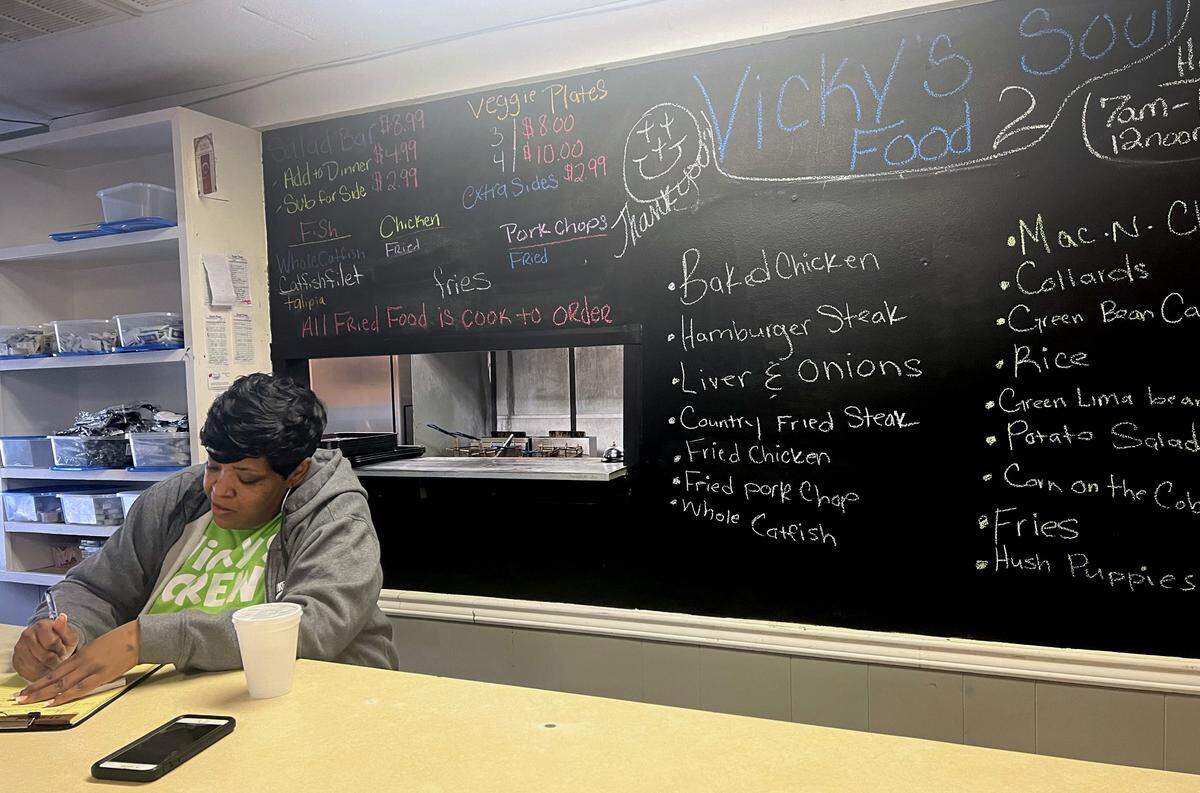 Salad Bar $8.99
Add to Dinner $4.99
Sub for Side $2.99
Veggie Plates
3 $8.00
4 $10.00
extra Sides $2.99
Fish
Whole Catfish
Catfish filet
talipia
Chicken
Fried
Pork Chops
Fried
fries
All Fried Food is Cook to Order
Thank you
Vicky's Soul
Food 2
7am-
12noon
• Baked Chicken
• Hamburger Steak
• Liver & Onions
• Country Fried Steak
• Fried Chicken
• Fried pork Chop
• Whole Catfish
• Mac-N-C
• Collards
• Green Bean Ca
• Rice
• Green Lima bean
• Potato Salad
• Corn on the Cob
• Fries
• Hush Puppies